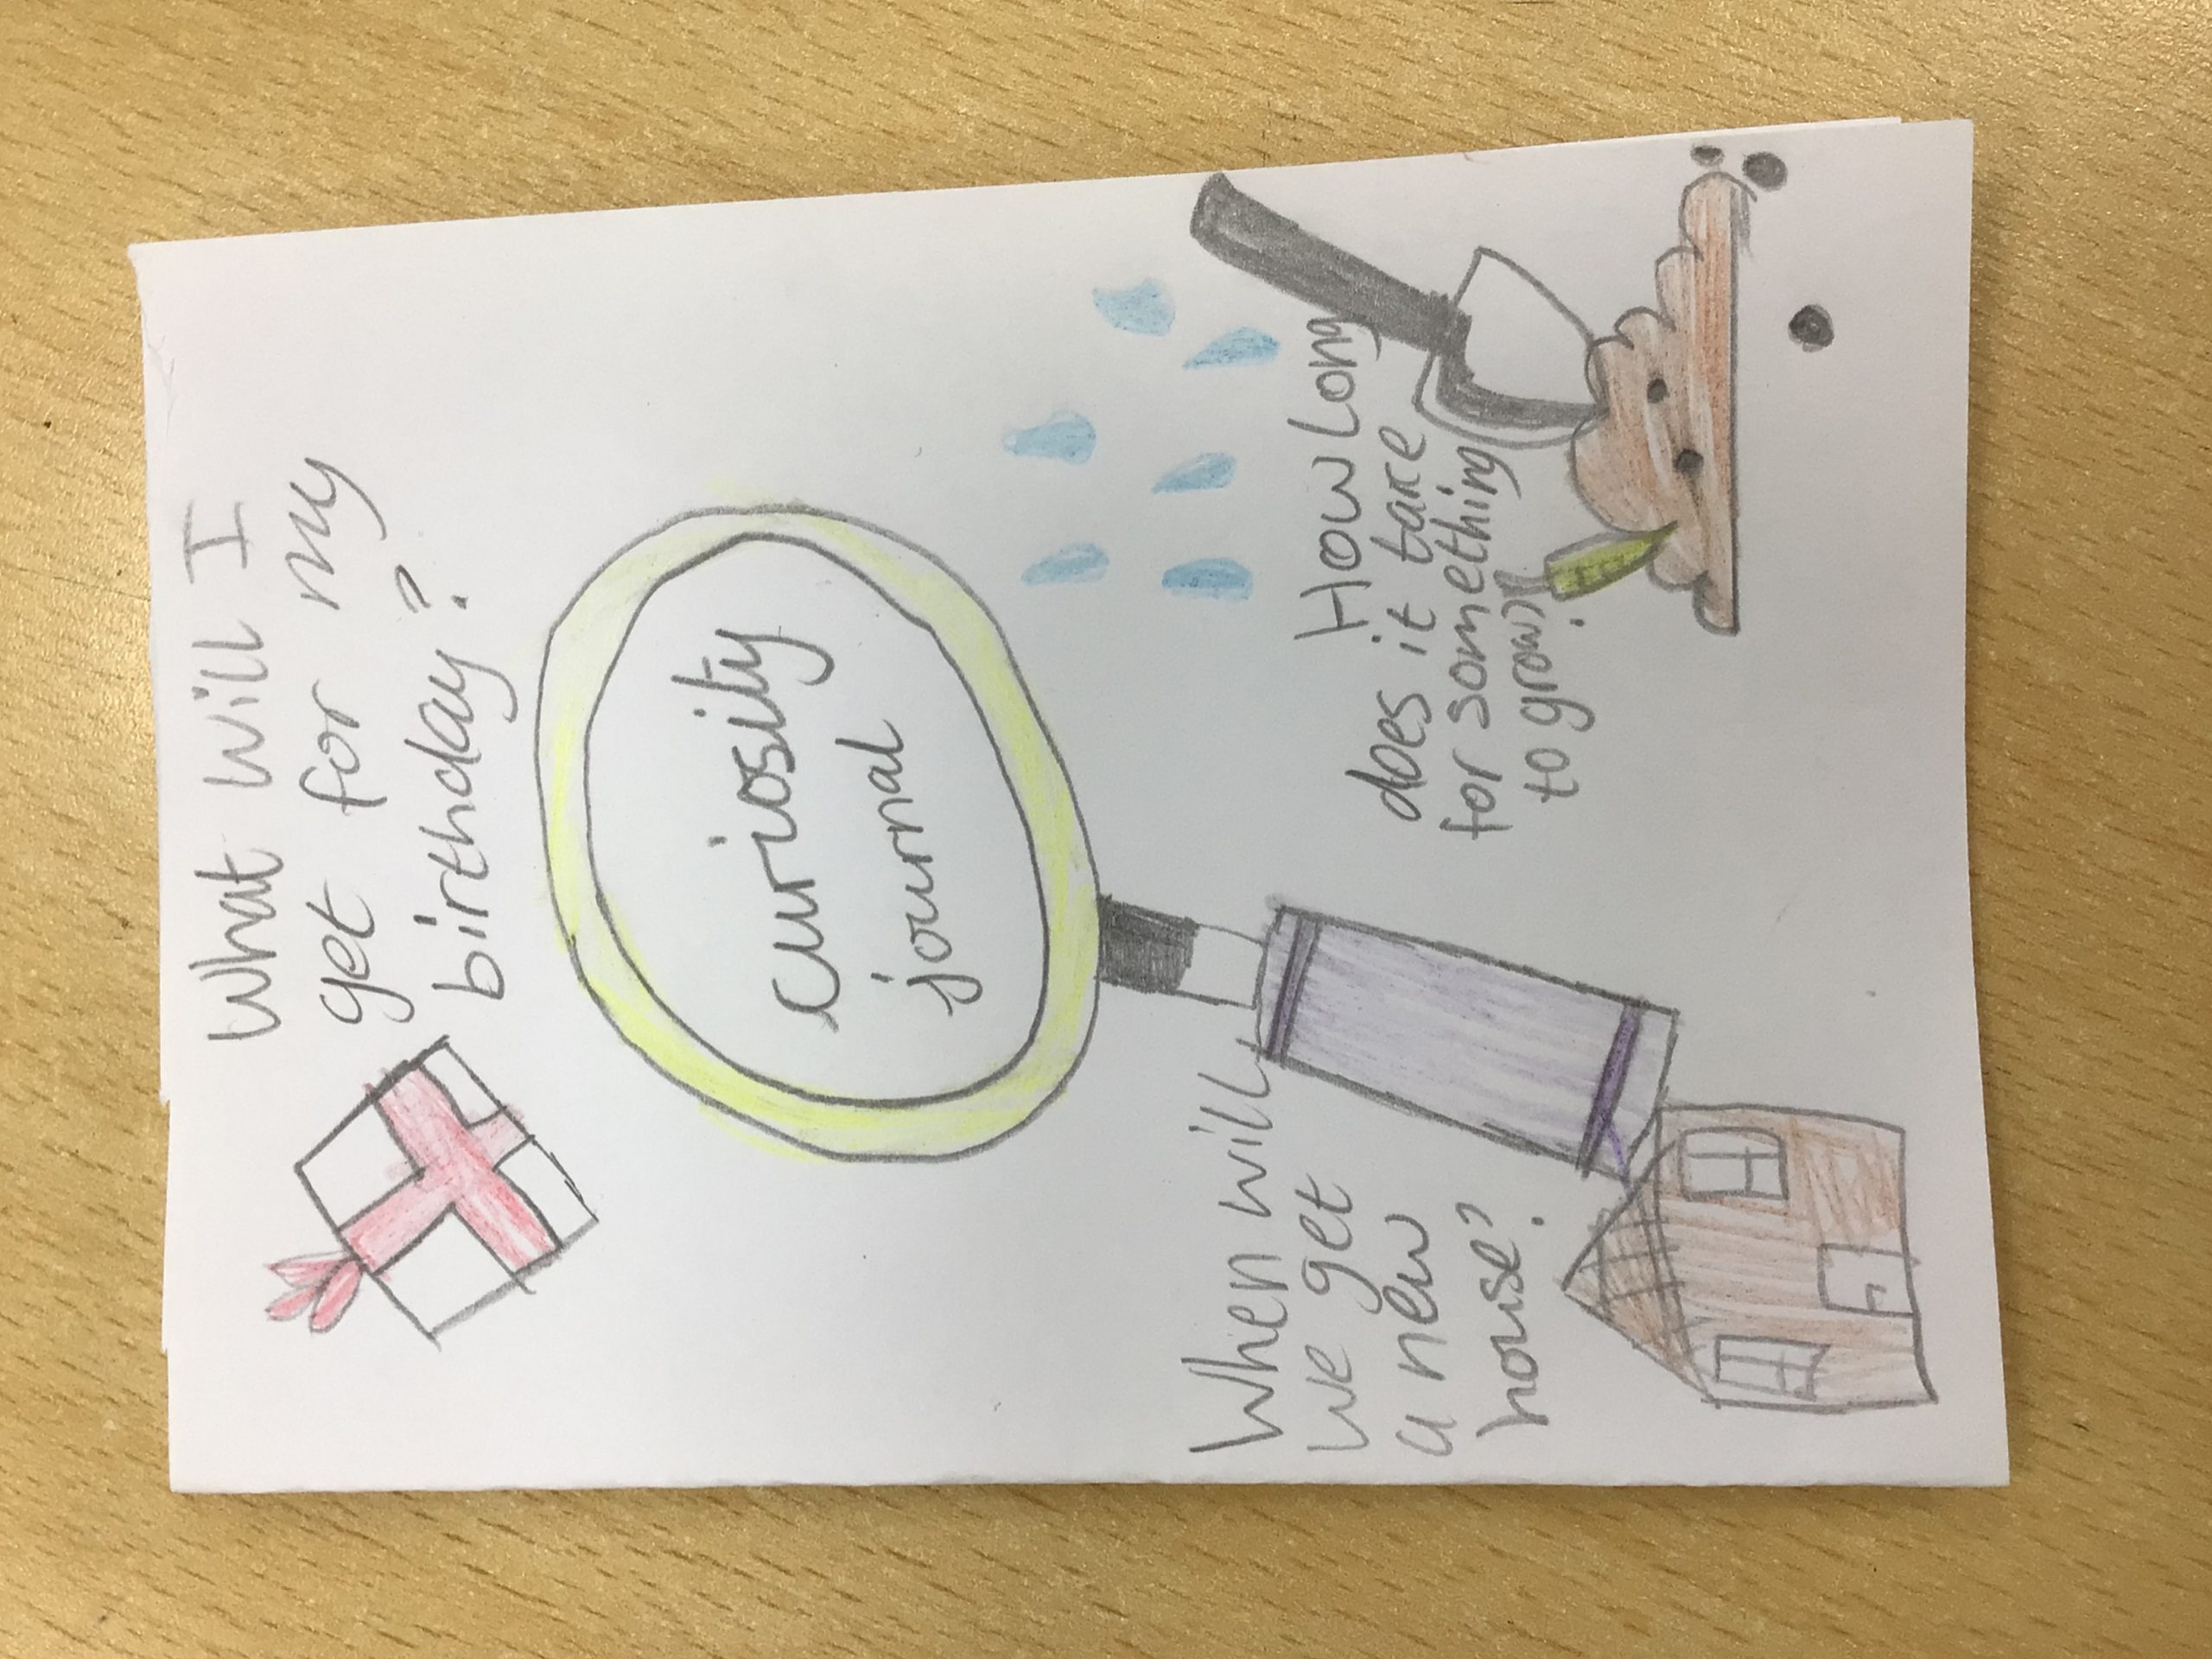 What will I
get for my
birthday?
curiosity
journal
When will
we get
a new
house?
How Long
does it take
for something
to grow?